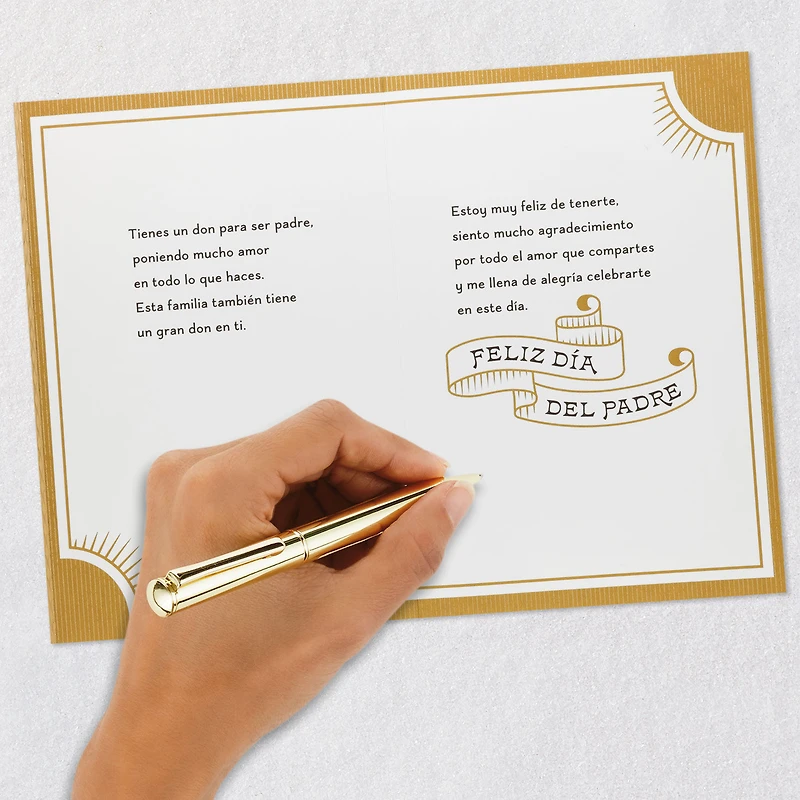 Tienes un don para ser padre,
poniendo mucho amor
en todo lo que haces.
Esta familia también tiene
un gran don en ti.
Estoy muy feliz de tenerte,
siento mucho agradecimiento
por todo el amor que compartes
y me llena de alegría celebrarte
en este día.
FELIZ DÍA
DEL PADRE